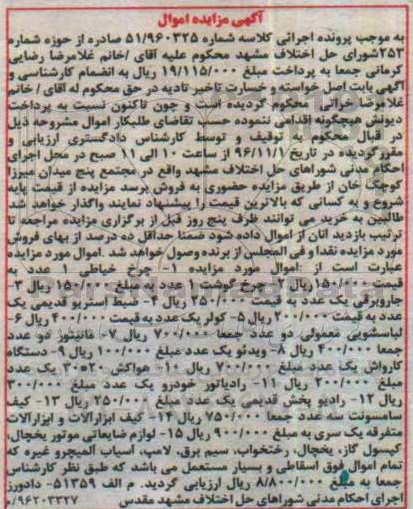 آگهی مزایده اموال
به موجب پرونده اجرائی کلاسه شماره ۵۱/۹۶۰۳۲۵ صادره از حوزه شماره
۲۵۳شورای حل اختلاف مشهد محکوم علیه آقای /خانم غلامرضا رضایی
کرمانی جمعا به پرداخت مبلغ ۱۹/۱۱۵/۰۰۰ ریال به انضمام کارشناسی و
آگهی بابت اصل خواسته و خسارت تاخیر تادیه در حق محکوم له آقای / خانم
غلامرضا خزائی محکوم گردیده است و چون تاکنون نسبت به پرداخت
دیونش هیچگونه اقدامی ننموده حسب تقاضای طلبکار اموال مشروحه ذیل
در قبال محکوم به توقیف و توسط کارشناس دادگستری ارزیابی و
مقررگردیده در تاریخ ۹۶/۱۱/۱ از ساعت ۱۰ الی ۱۱ صبح در محل اجرای
احکام مدنی شوراهای حل اختلاف مشهد واقع در مجتمع پنج میدان میرزا
کوچک خان از طریق مزایده حضوری به فروش برسد مزایده از قیمت پایه
شروع و به کسانی که بالاترین قیمت را پیشنهاد نمایند واگذار خواهد شد
طالبین به خرید می توانند ظرف پنج روز قبل از برگزاری مزایده مراجعه تا
ترتیب بازدید آنان از اموال داده شود ضمنا حداقل ده درصد از بهای فروش
مورد مزایده نقدا و فی المجلس از برنده وصول خواهد شد .اموال مورد مزایده
عبارت است از :اموال مورد مزایده ۱- چرخ خیاطی ۱ عدد به
قیمت ۱/۱۵۰/۰۰۰ ریال ۲- چرخ گوشت ۱ عدد به مبلغ ۱۵۰/۰۰۰ ریال ۳-
جاروبرقی یک عدد به قیمت ۲۵۰/۰۰۰ ریال ۴- ضبط استریو قدیمی یک
عدد به قیمت ۲۰۰/۰۰۰ ریال ۵- کولر یک عدد به قیمت ۴۰۰/۰۰۰ ریال ۶-
لباسشویی معمولی دو عدد جمعا ۷۰۰/۰۰۰ ریال ۷- مانیتور دو عدد
جمعا ۴۰۰/۰۰۰ ریال ۸- ویدئو یک عدد مبلغ ۱۰۰/۰۰۰ ریال ۹- دستگاه
کارواش یک عدد مبلغ ۷۰۰/۰۰۰ ریال ۱۰- هواکش ۳۰*۳۰ یک عدد
مبلغ ۲۰۰/۰۰۰ ریال ۱۱- رادیاتور خودرو یک عدد مبلغ ۳۰۰/۰۰۰
ریال ۱۲- رادیو پخش قدیمی یک عدد مبلغ ۲۵۰/۰۰۰ ریال ۱۳- کیف
سامسونت سه عدد جمعا ۷۵۰/۰۰۰ ریال ۱۴- کیف ابزارآلات و ابزارآلات
متفرقه یک سری به مبلغ ۹۰۰/۰۰۰ ریال ۱۵- لوازم ضایعاتی موتور یخچال،
کپسول گاز، یخچال، رختخواب، سیم برق، لامپ، اسباب آلمیچرو غیره که
تمام اموال فوق اسقاطی و بسیار مستعمل می باشد که طبق نظر کارشناس
جمعا به مبلغ ۸/۸۰۰/۰۰۰ ریال ارزیابی گردید. م الف ۵۱۳۵۹- دادورز
اجرای احکام مدنی شوراهای حل اختلاف مشهد مقدس ۹۶۲۰۳۳۲۷/م